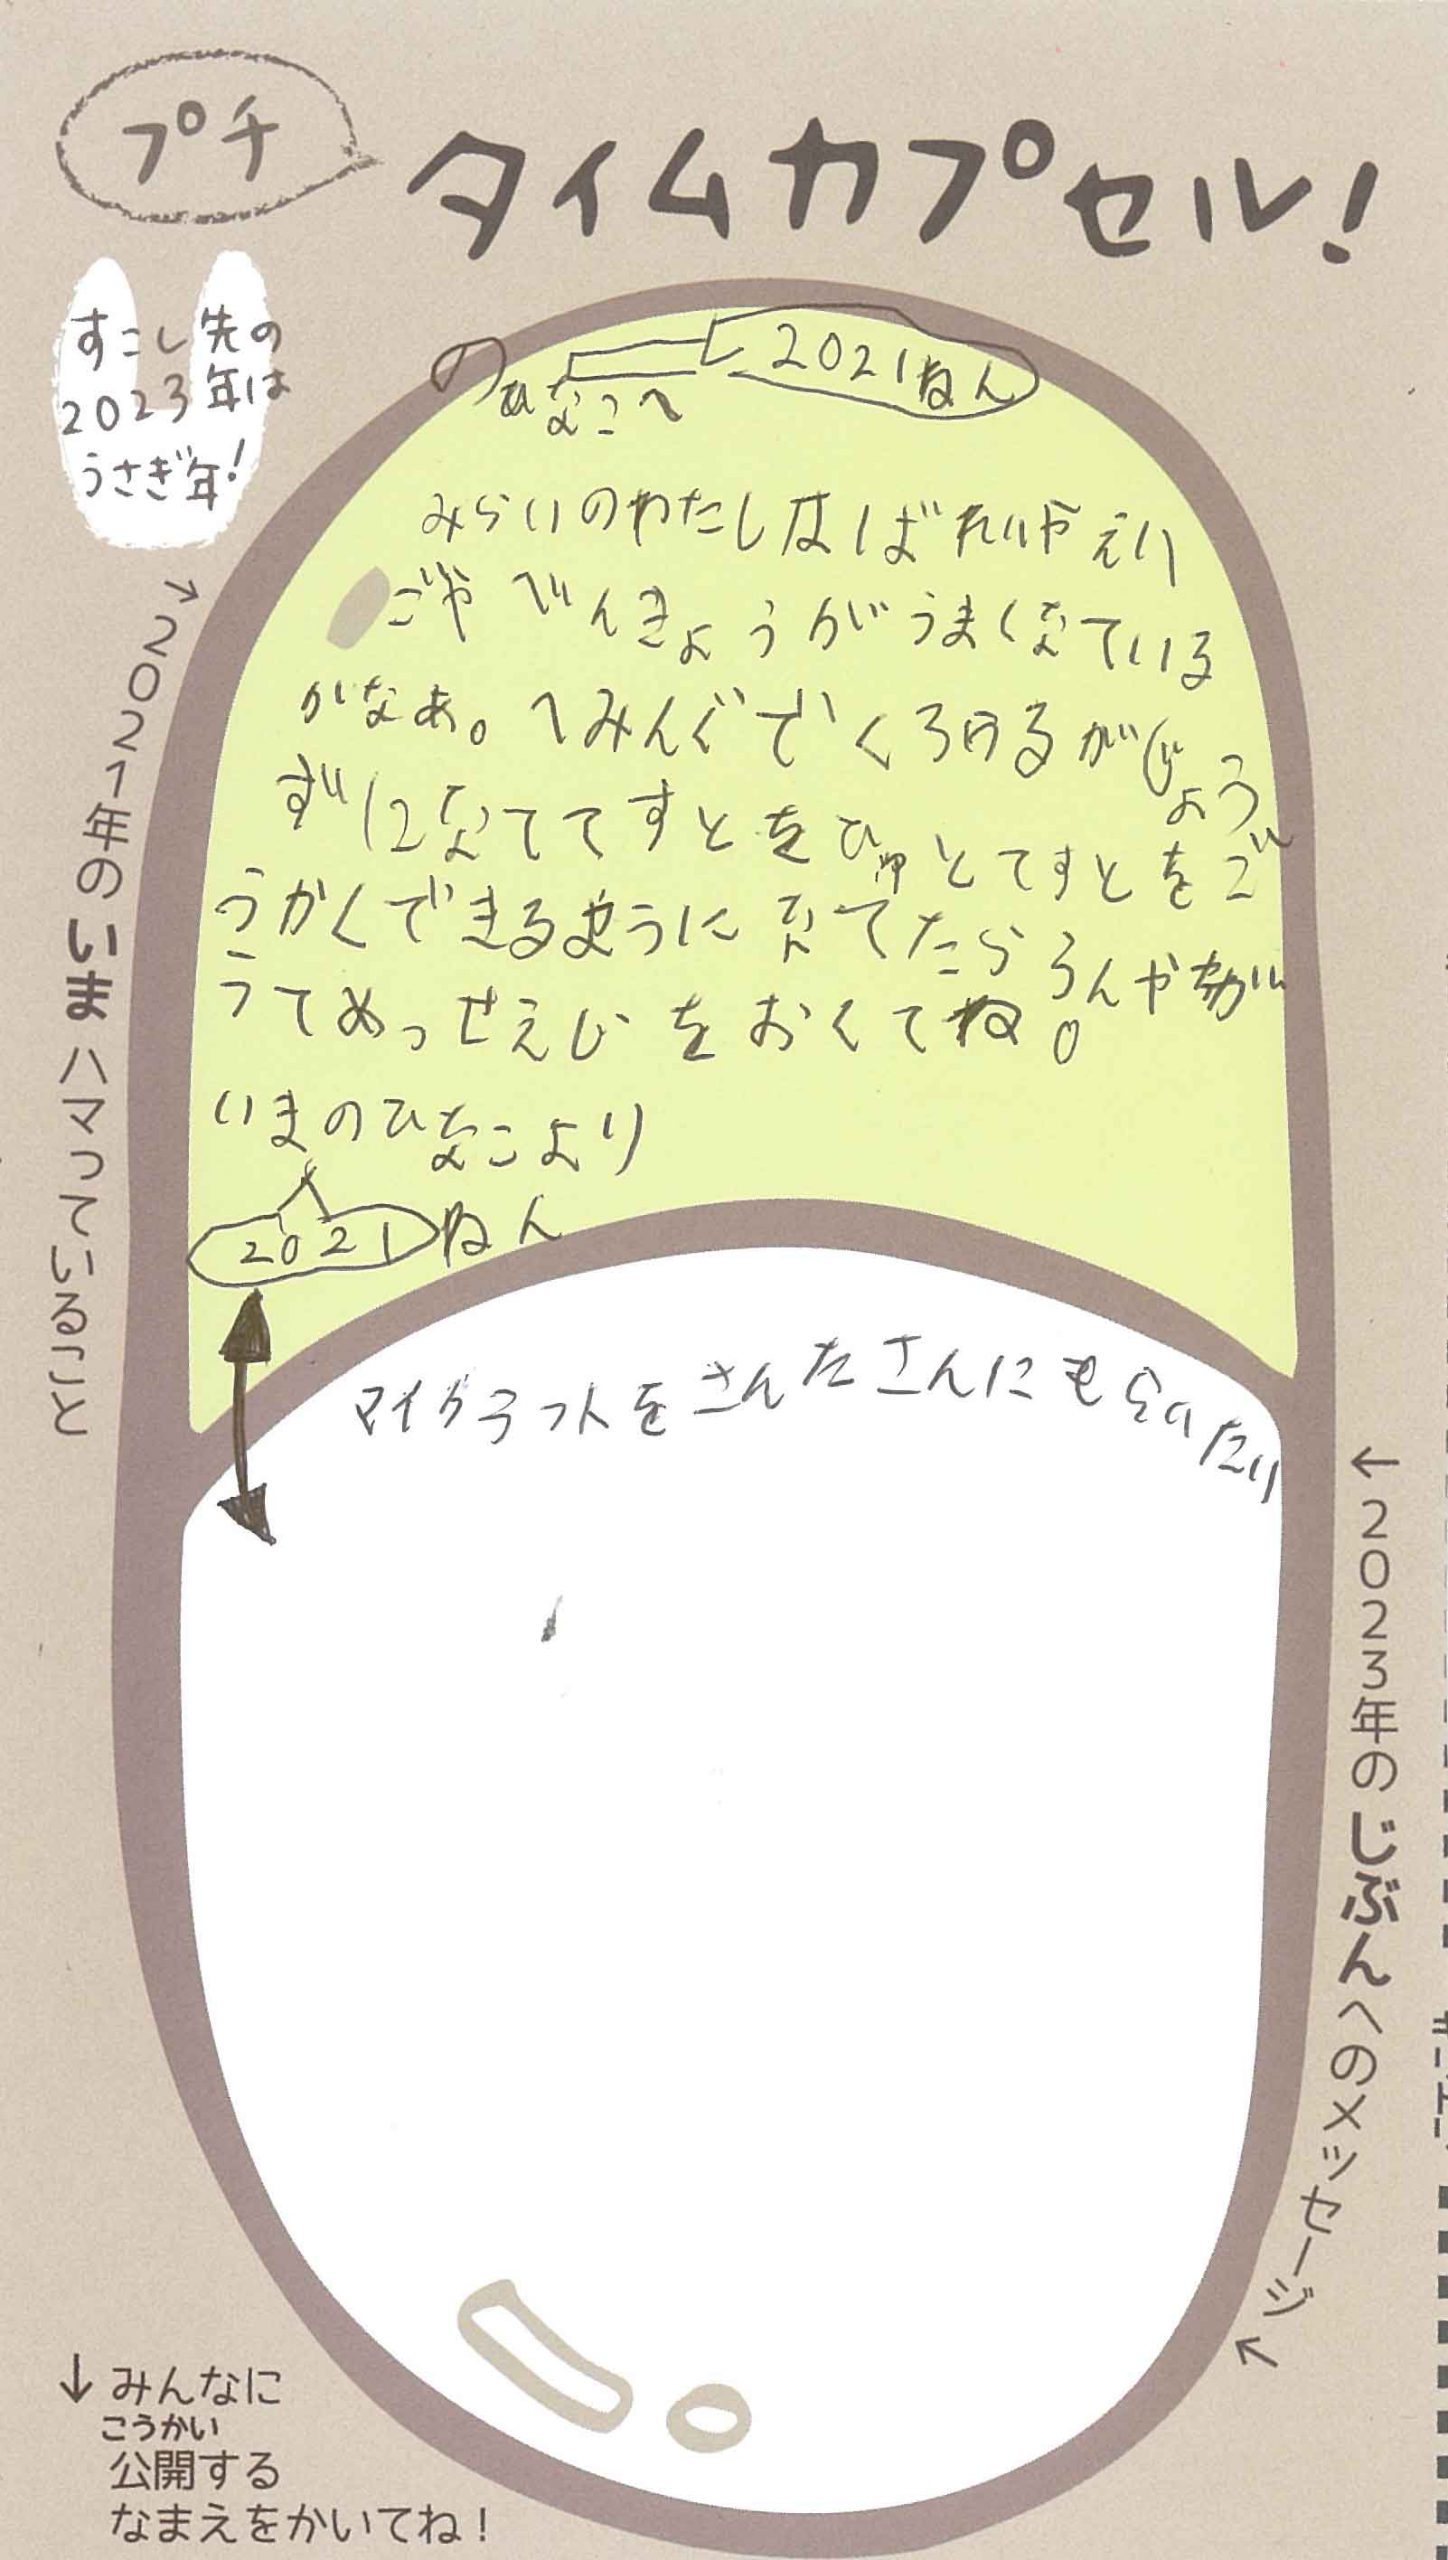 プチ
タイムカプセル!
すこし先の
2023年は
うさぎ年!
2021ねん
のひなこへ
みらいのわたしはばれいやえい
ごやべんきょうがうまくなている
かなあ。へみんぐでくろけるがじょう
ずになててすとをひゅとてすとをご
うかくできるようになてたら
うてめっせえじをおくてね。
いまのひなこより
2021ねん
マイクラフトをさんたさんにもらいたい
→2021年のいまハマっていること
←2023年のじぶんへのメッセージ
↓みんなに
こうかい
公開する
なまえをかいてね!